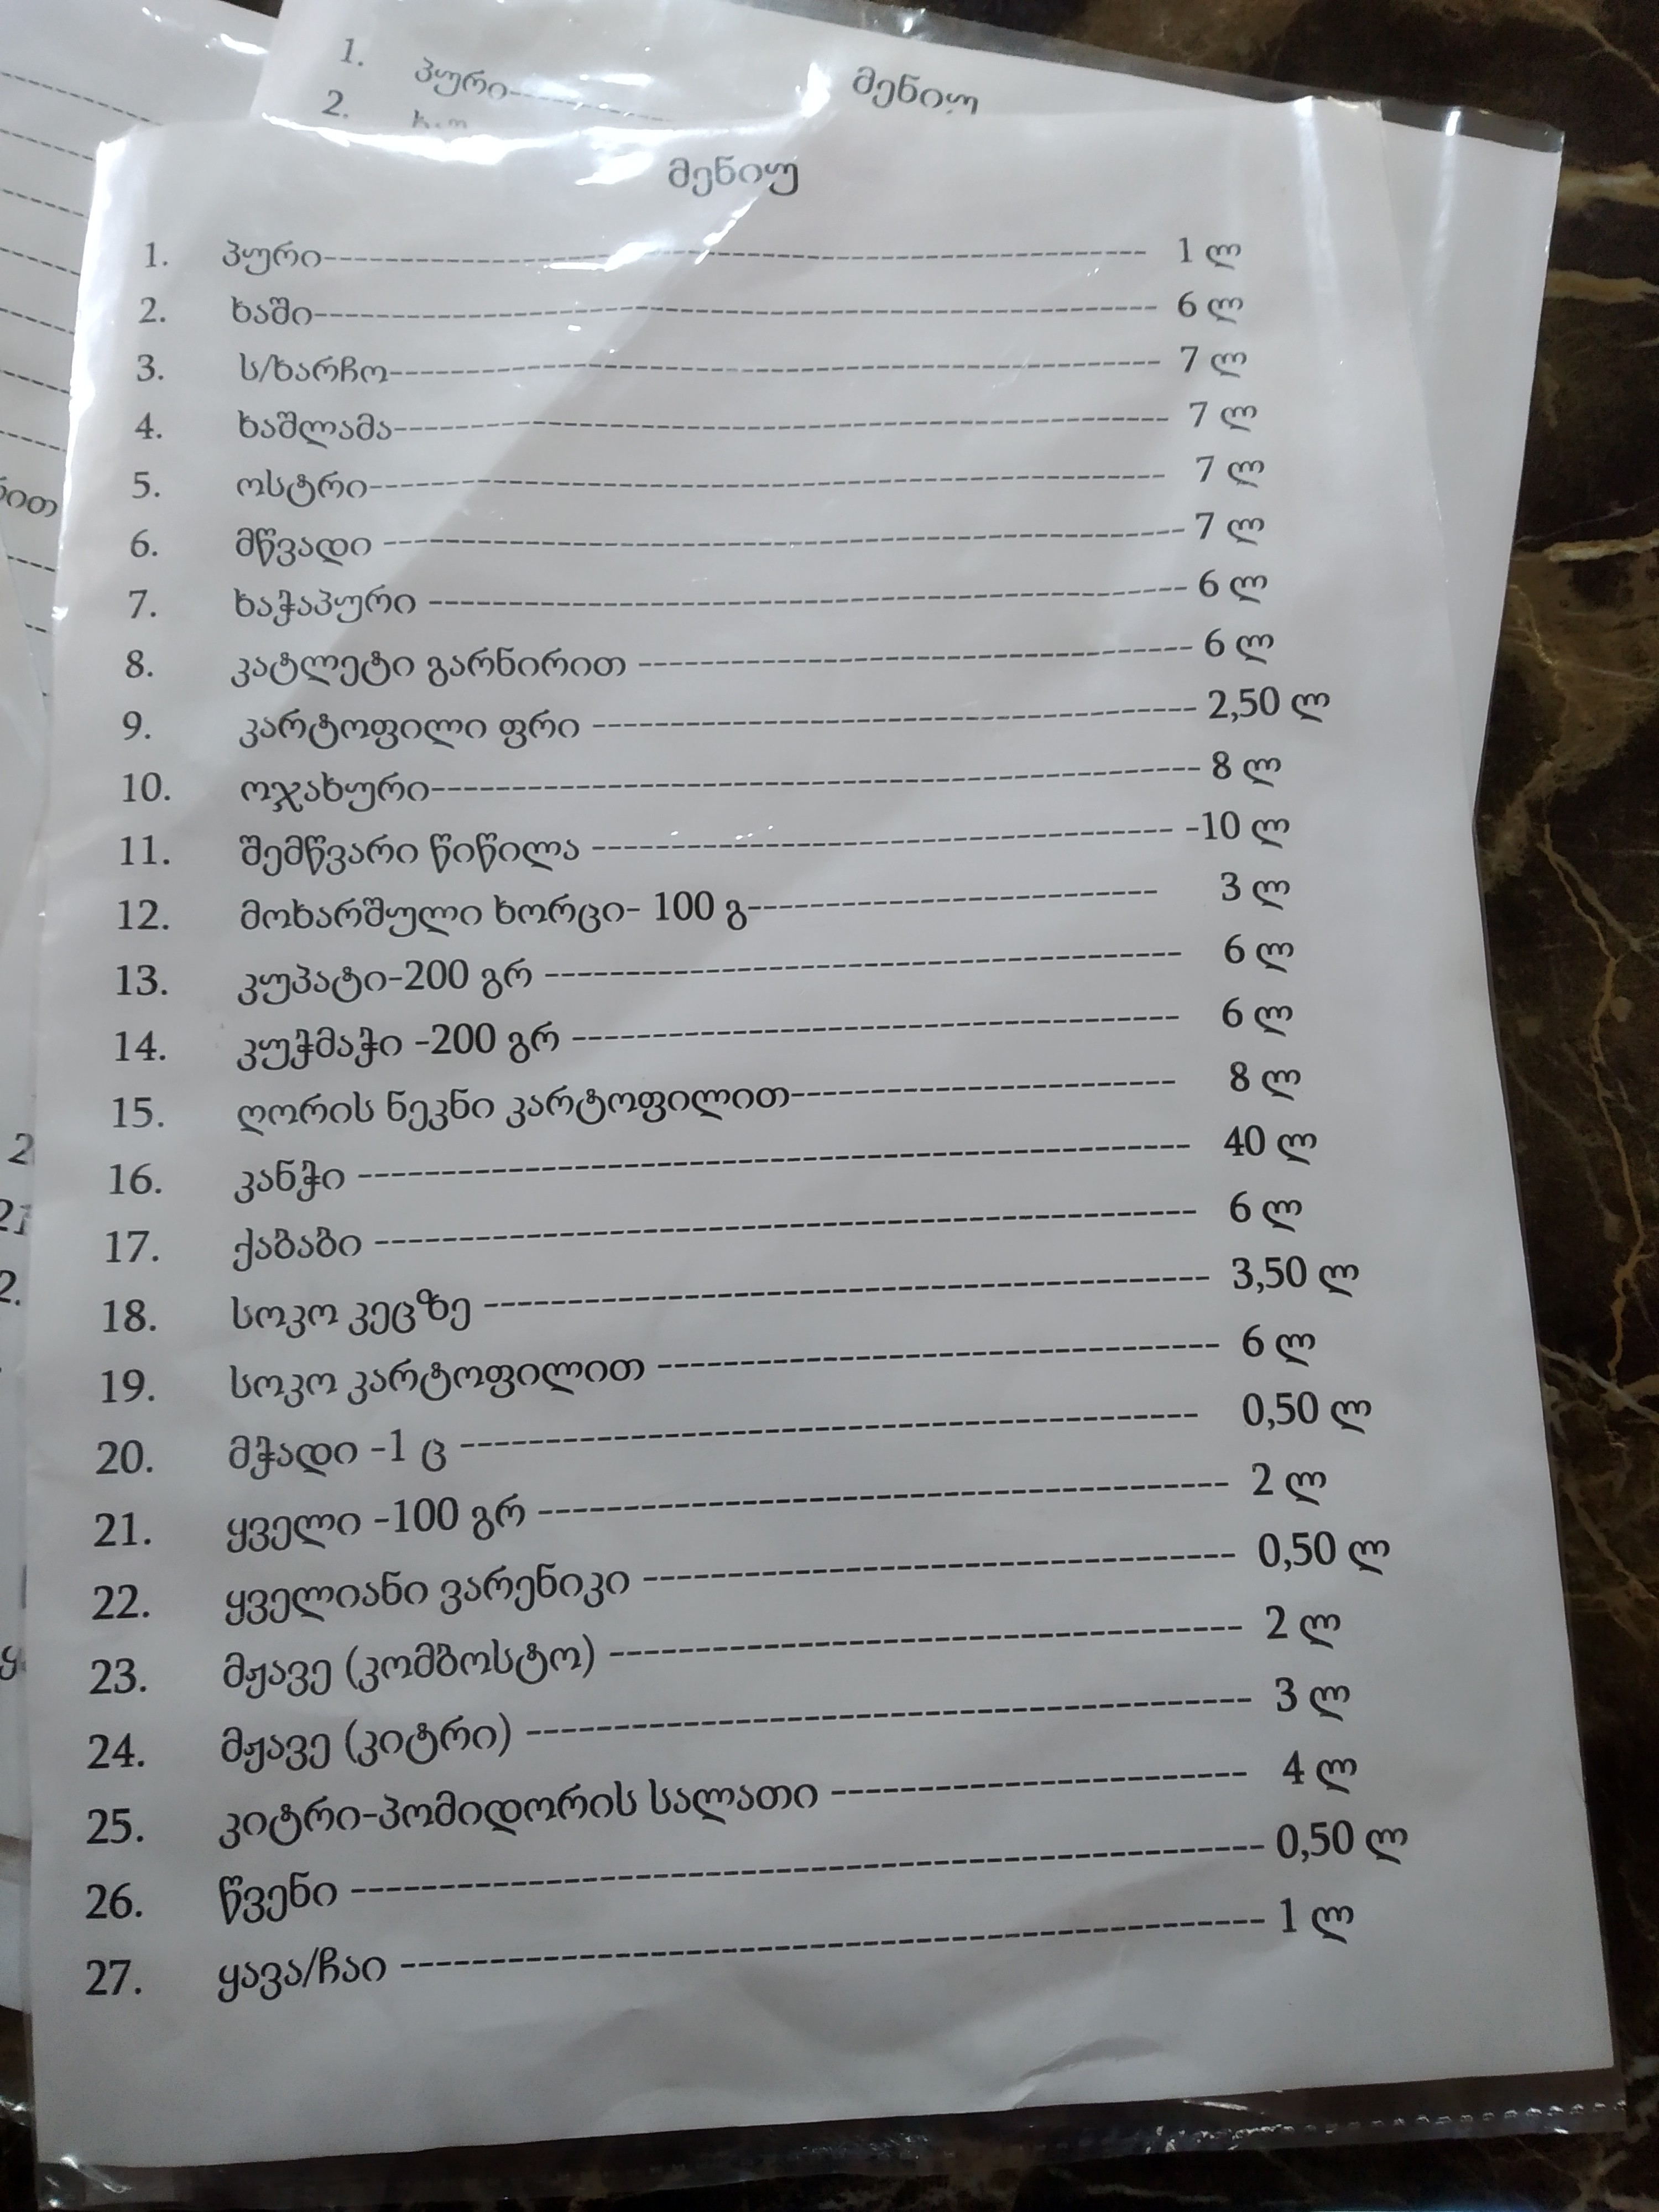 1. პური
2.
მენიუ
მენიუ
1. პური------------------------------ 1 ლ
2. ხაში------------------------------ 6 ლ
3. ს/ხარჩო------------------------------ 7 ლ
4. ხაშლამა------------------------------ 7 ლ
5. ოსტრი------------------------------ 7 ლ
6. მწვადი ------------------------------ 7 ლ
7. ხაჭაპური ------------------------------ 6 ლ
8. კატლეტი გარნირით ------------------------------ 6 ლ
9. კარტოფილი ფრი ------------------------------ 2,50 ლ
10. ოჯახური------------------------------ 8 ლ
11. შემწვარი წიწილა ------------------------------ -10 ლ
12. მოხარშული ხორცი- 100 გ------------------------------ 3 ლ
13. კუპატი-200 გრ ------------------------------ 6 ლ
14. კუჭმაჭი -200 გრ ------------------------------ 6 ლ
15. ღორის ნეკნი კარტოფილით------------------------------ 8 ლ
16. კანჭი ------------------------------ 40 ლ
17. ქაბაბი ------------------------------ 6 ლ
18. სოკო კეცზე ------------------------------ 3,50 ლ
19. სოკო კარტოფილით ------------------------------ 6 ლ
20. მჭადი -1 ც ------------------------------ 0,50 ლ
21. ყველი -100 გრ ------------------------------ 2 ლ
22. ყველიანი ვარენიკი ------------------------------ 0,50 ლ
23. მჟავე (კომბოსტო) ------------------------------ 2 ლ
24. მჟავე (კიტრი) ------------------------------ 3 ლ
25. კიტრი-პომიდორის სალათი ------------------------------ 4 ლ
26. წვენი ------------------------------ 0,50 ლ
27. ყავა/ჩაი ------------------------------ 1 ლ